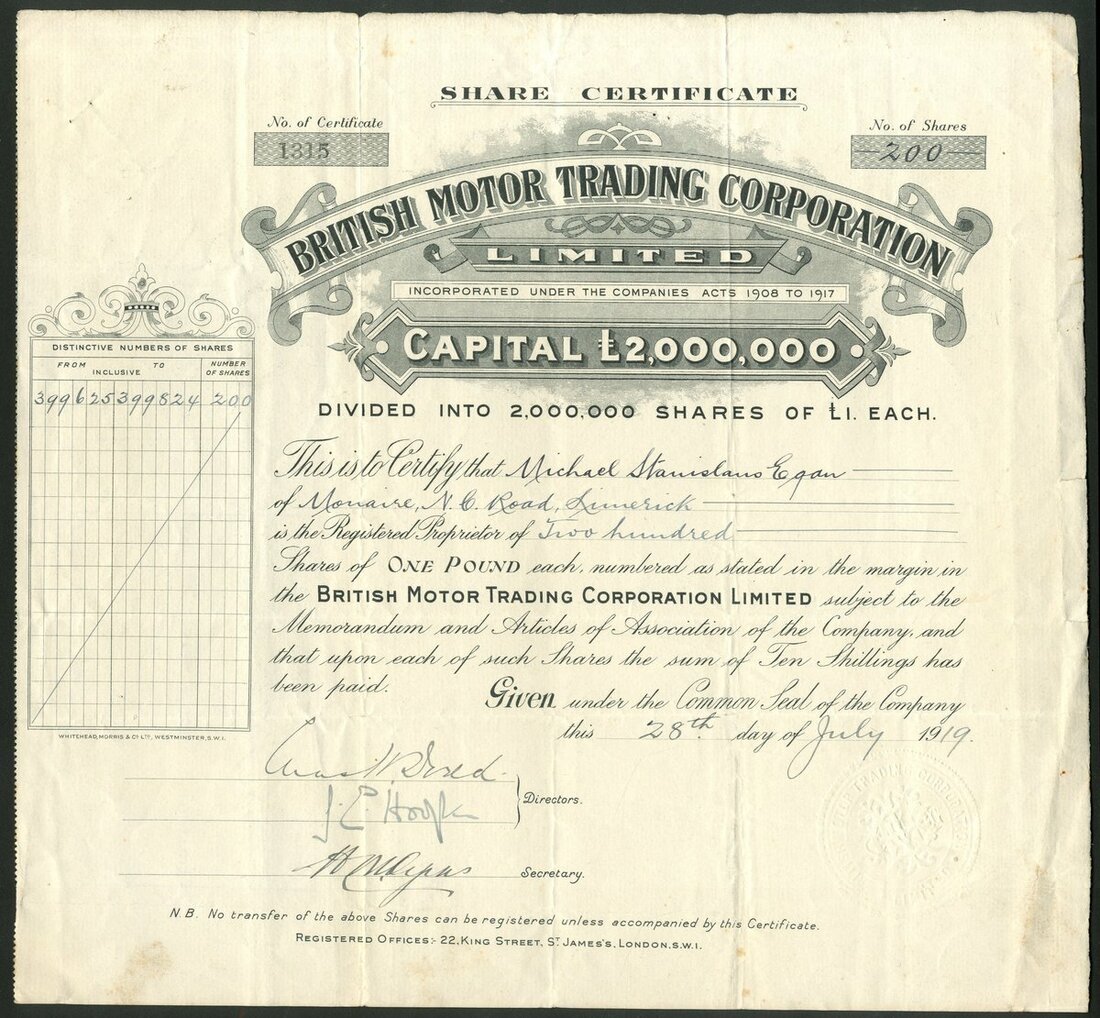 SHARE CERTIFICATE
No. of Certificate
1315
No. of Shares
200
BRITISH MOTOR TRADING CORPORATION
LIMITED
INCORPORATED UNDER THE COMPANIES ACTS 1908 TO 1917
CAPITAL £2,000,000
DIVIDED INTO 2,000,000 SHARES OF £1. EACH.
DISTINCTIVE NUMBERS OF SHARES
FROM TO NUMBER
INCLUSIVE OF SHARES
399625 399824 200
WHITEHEAD, MORRIS & Co LTD, WESTMINSTER, S.W.1.
This is to Certify that Michael Stanislaus Egan
of Monaire, N.C. Road, Limerick
is the Registered Proprietor of Two hundred
Shares of ONE POUND each, numbered as stated in the margin in
the BRITISH MOTOR TRADING CORPORATION LIMITED subject to the
Memorandum and Articles of Association of the Company, and
that upon each of such Shares the sum of Ten Shillings has
been paid.
Given under the Common Seal of the Company
this 28th day of July 1919.
Directors.
Secretary.
TRADING CORPORATION
N.B. No transfer of the above Shares can be registered unless accompanied by this Certificate.
REGISTERED OFFICES:- 22, KING STREET, ST JAMES'S, LONDON, S.W.1.